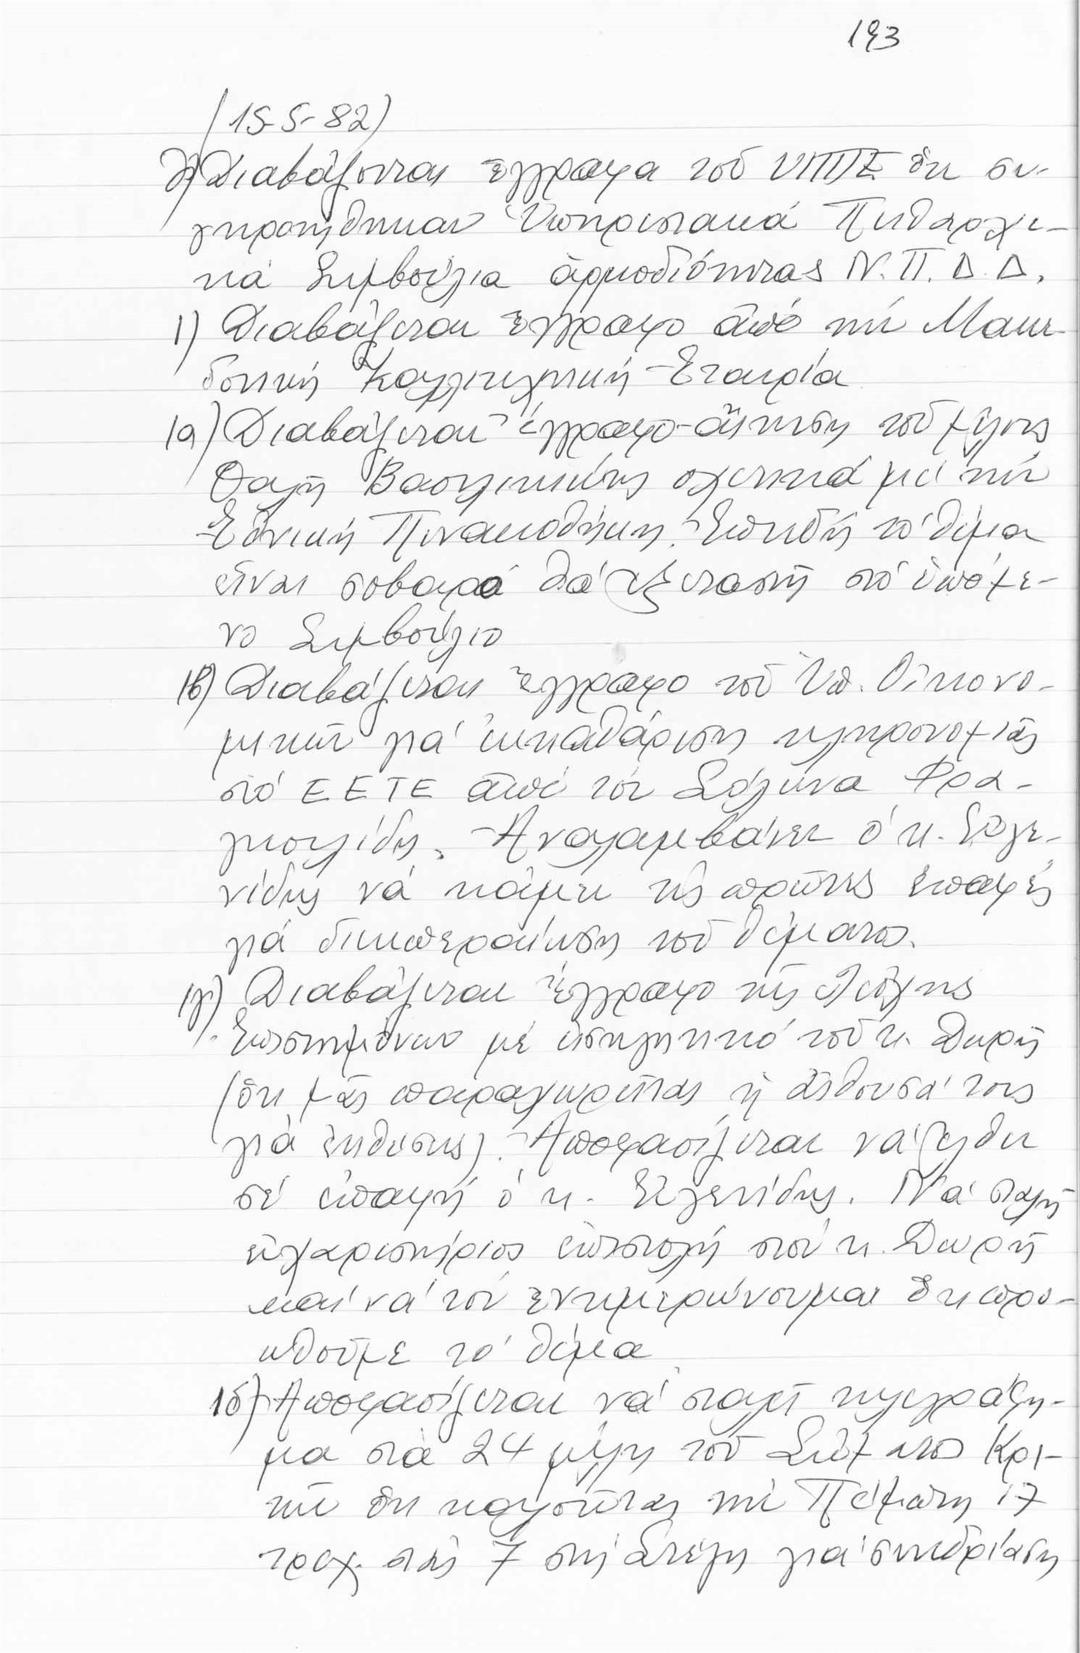 193
(15-5-82)
θ) Διαβάζονται ἔγγραφα τοῦ ΥΠΠΕ ὅτι συ-
γκροτήθηκαν Ὑπηρεσιακά Πειθαρχι-
κά Συμβούλια ἁρμοδιότητας Ν.Π.Δ.Δ.
ι) Διαβάζεται ἔγγραφο ἀπό τήν Μακε-
δονική Καλλιτεχνική Ἑταιρία
ια) Διαβάζεται ἔγγραφο-αἴτηση τοῦ μέλους
Θαλῆ Βασιλικιώτη σχετικά μέ τήν
Ἐθνική Πινακοθήκη. Ἐπειδή τό θέμα
εἶναι σοβαρό θά ἐξετασθῆ στό ἑπόμε-
νο Συμβούλιο
ιβ) Διαβάζεται ἔγγραφο τοῦ Ὑπ. Οἰκονο-
μικῶν γιά ἐκκαθάριση κληρονομιᾶς
στό ΕΕΤΕ ἀπό τόν Σόλωνα Φρα-
γκουλίδη. Ἀναλαμβάνει ὁ κ. Εὐγε-
νίδης νά κάμει τίς πρῶτες ἐπαφές
γιά διεκπεραίωση τοῦ θέματος.
ιγ) Διαβάζεται ἔγγραφο τῆς Λέσχης
Ἐπιστημόνων μέ εἰσηγητικό τοῦ κ. Δωρῆ
(ὅτι μᾶς παραχωρεῖται ἡ αἴθουσά τους
γιά ἐκθέσεις). Ἀποφασίζεται νά ἔλθει
σέ ἐπαφή ὁ κ. Εὐγενίδης. Νά σταλῆ
εὐχαριστήριος ἐπιστολή στόν κ. Δωρῆ
καί νά τόν ἐνημερώνουμαι ὅτι προ-
ωθοῦμε τό θέμα
ιδ) Ἀποφασίζεται νά σταλῆ τηλεγράφη-
μα στά 24 μέλη τοῦ Σώματος Κρι-
τῶν ὅτι καλοῦνται τήν Πέμπτη 17
τρεχ. στίς 7 στή Στέγη γιά συνεδρίαση